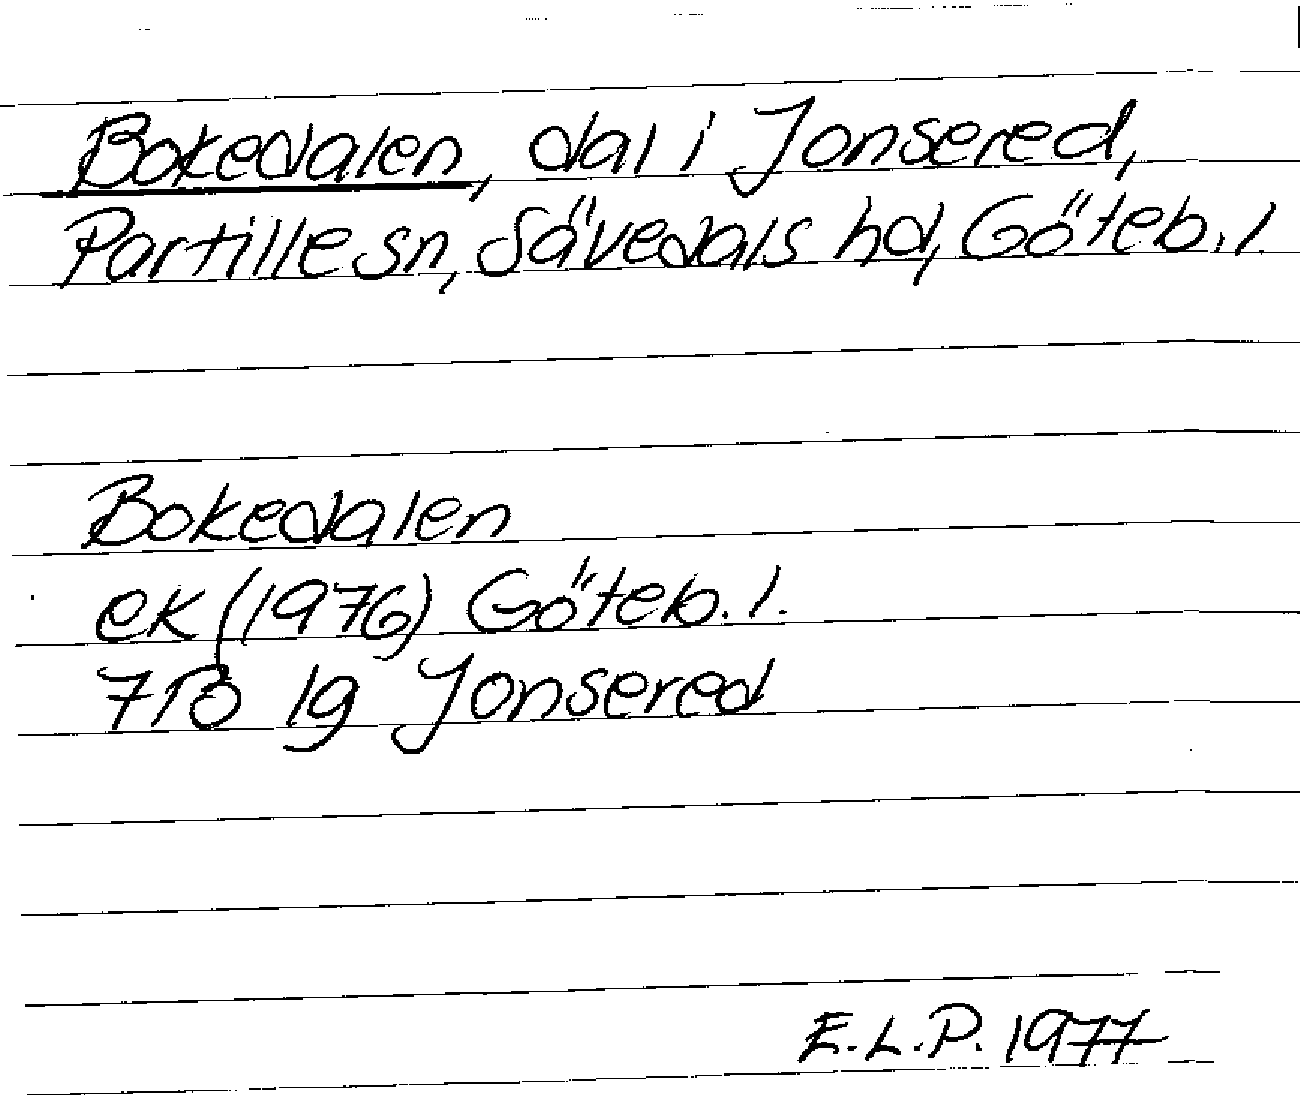 Bokedalen, dal i Jonsered,
Partille sn, Sävedals hd, Göteb. l.
Bokedalen
ek (1976) Göteb. l.
7B lg Jonsered
E.L.P. 1977